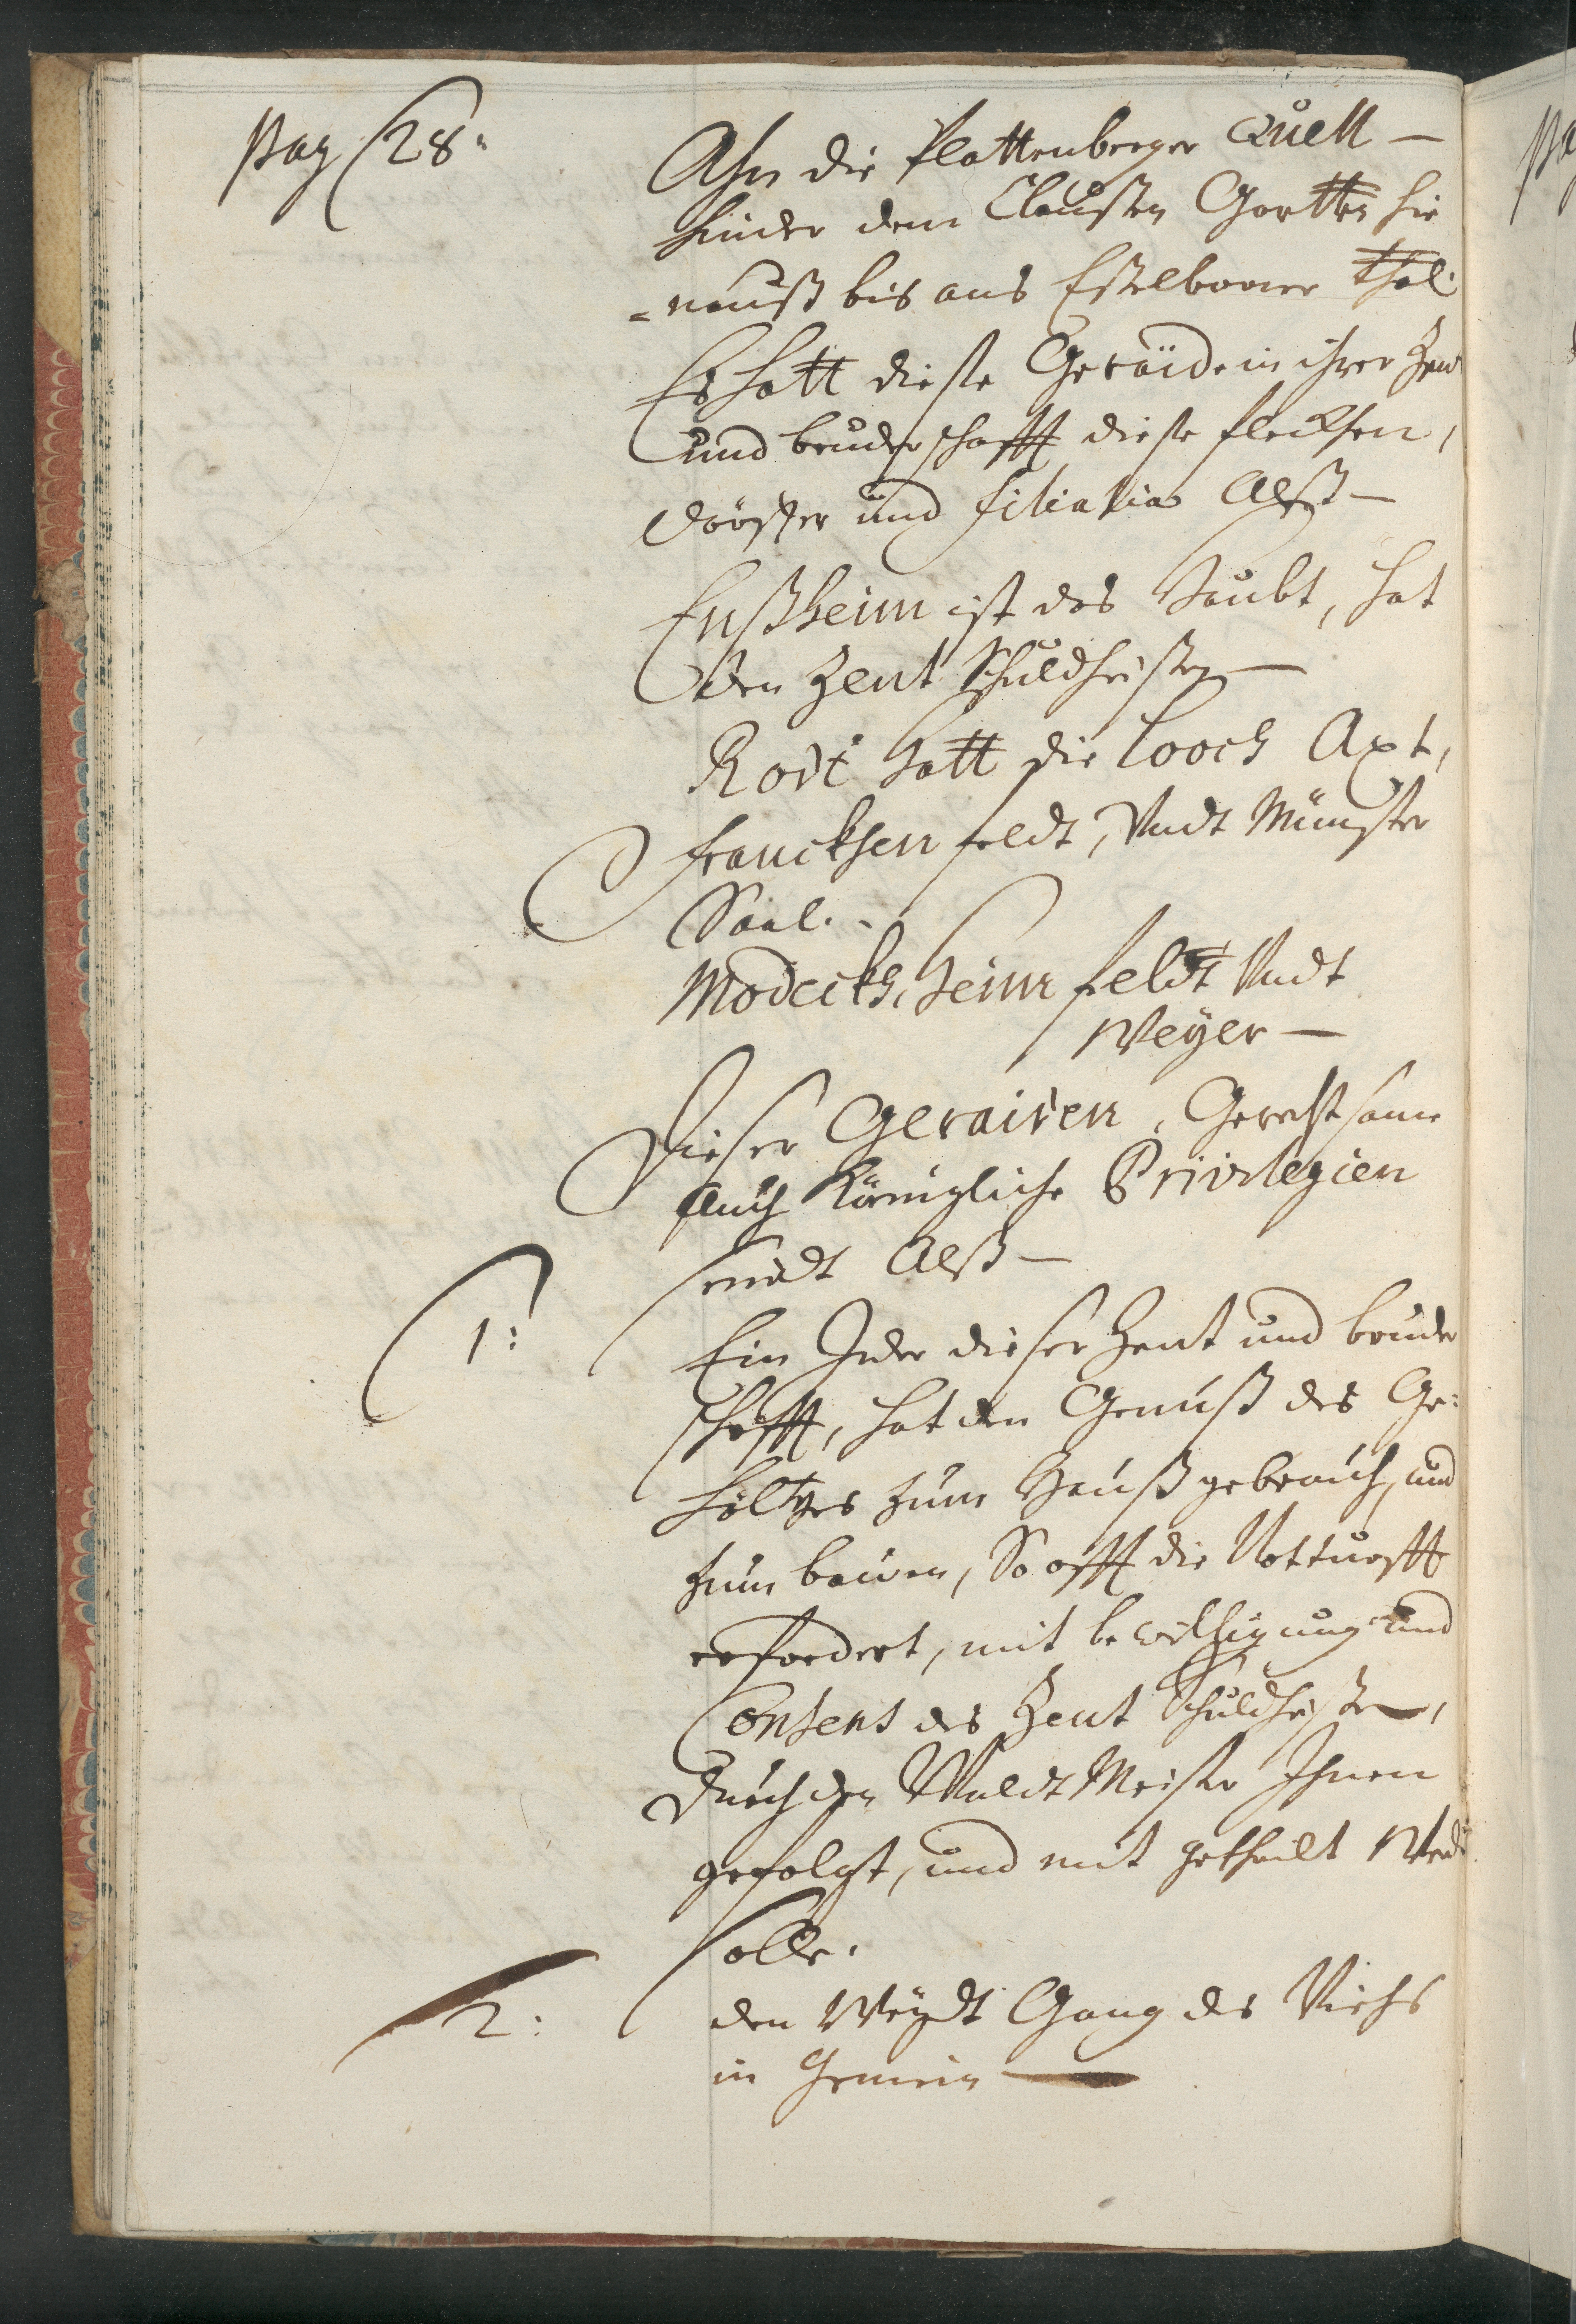 pag 28.
Ahn die Plattenberger Quell —
hinder dem Claußen Gartten hie
=nauß bis ans Esselborner thal.
Es hatt dieße Geraide in ihrer Zent
und bruderschafft dieße flecken,
Dörffer und filialia Alß —
Enßheim ist das Haubt, hat
den Zent Schuldheißen —
Rodt hatt die Looch Axt,
Francken feldt, Undt Münster
Saal.
Modeckh, heim feldt Undt
Weyer —
Dießer Geraiden, Gerechtsame
Auch Königliche Privilegien
seindt Alß —
1:
Ein Jder dießer Zent und bruder
schafft, hat den Genuß des Ge=
höltzes zum Haußgebrauch, und
zum bauen, So offt die Notturfft
erfordert, mit bewilligung und
Consens des Zent Schuldheißen,
Durch den Waldt Meister Ihnen
gefolgt, und mit getheilt Werd
solle.
2:
den Weydt Gang des Viehs
in Gemein —